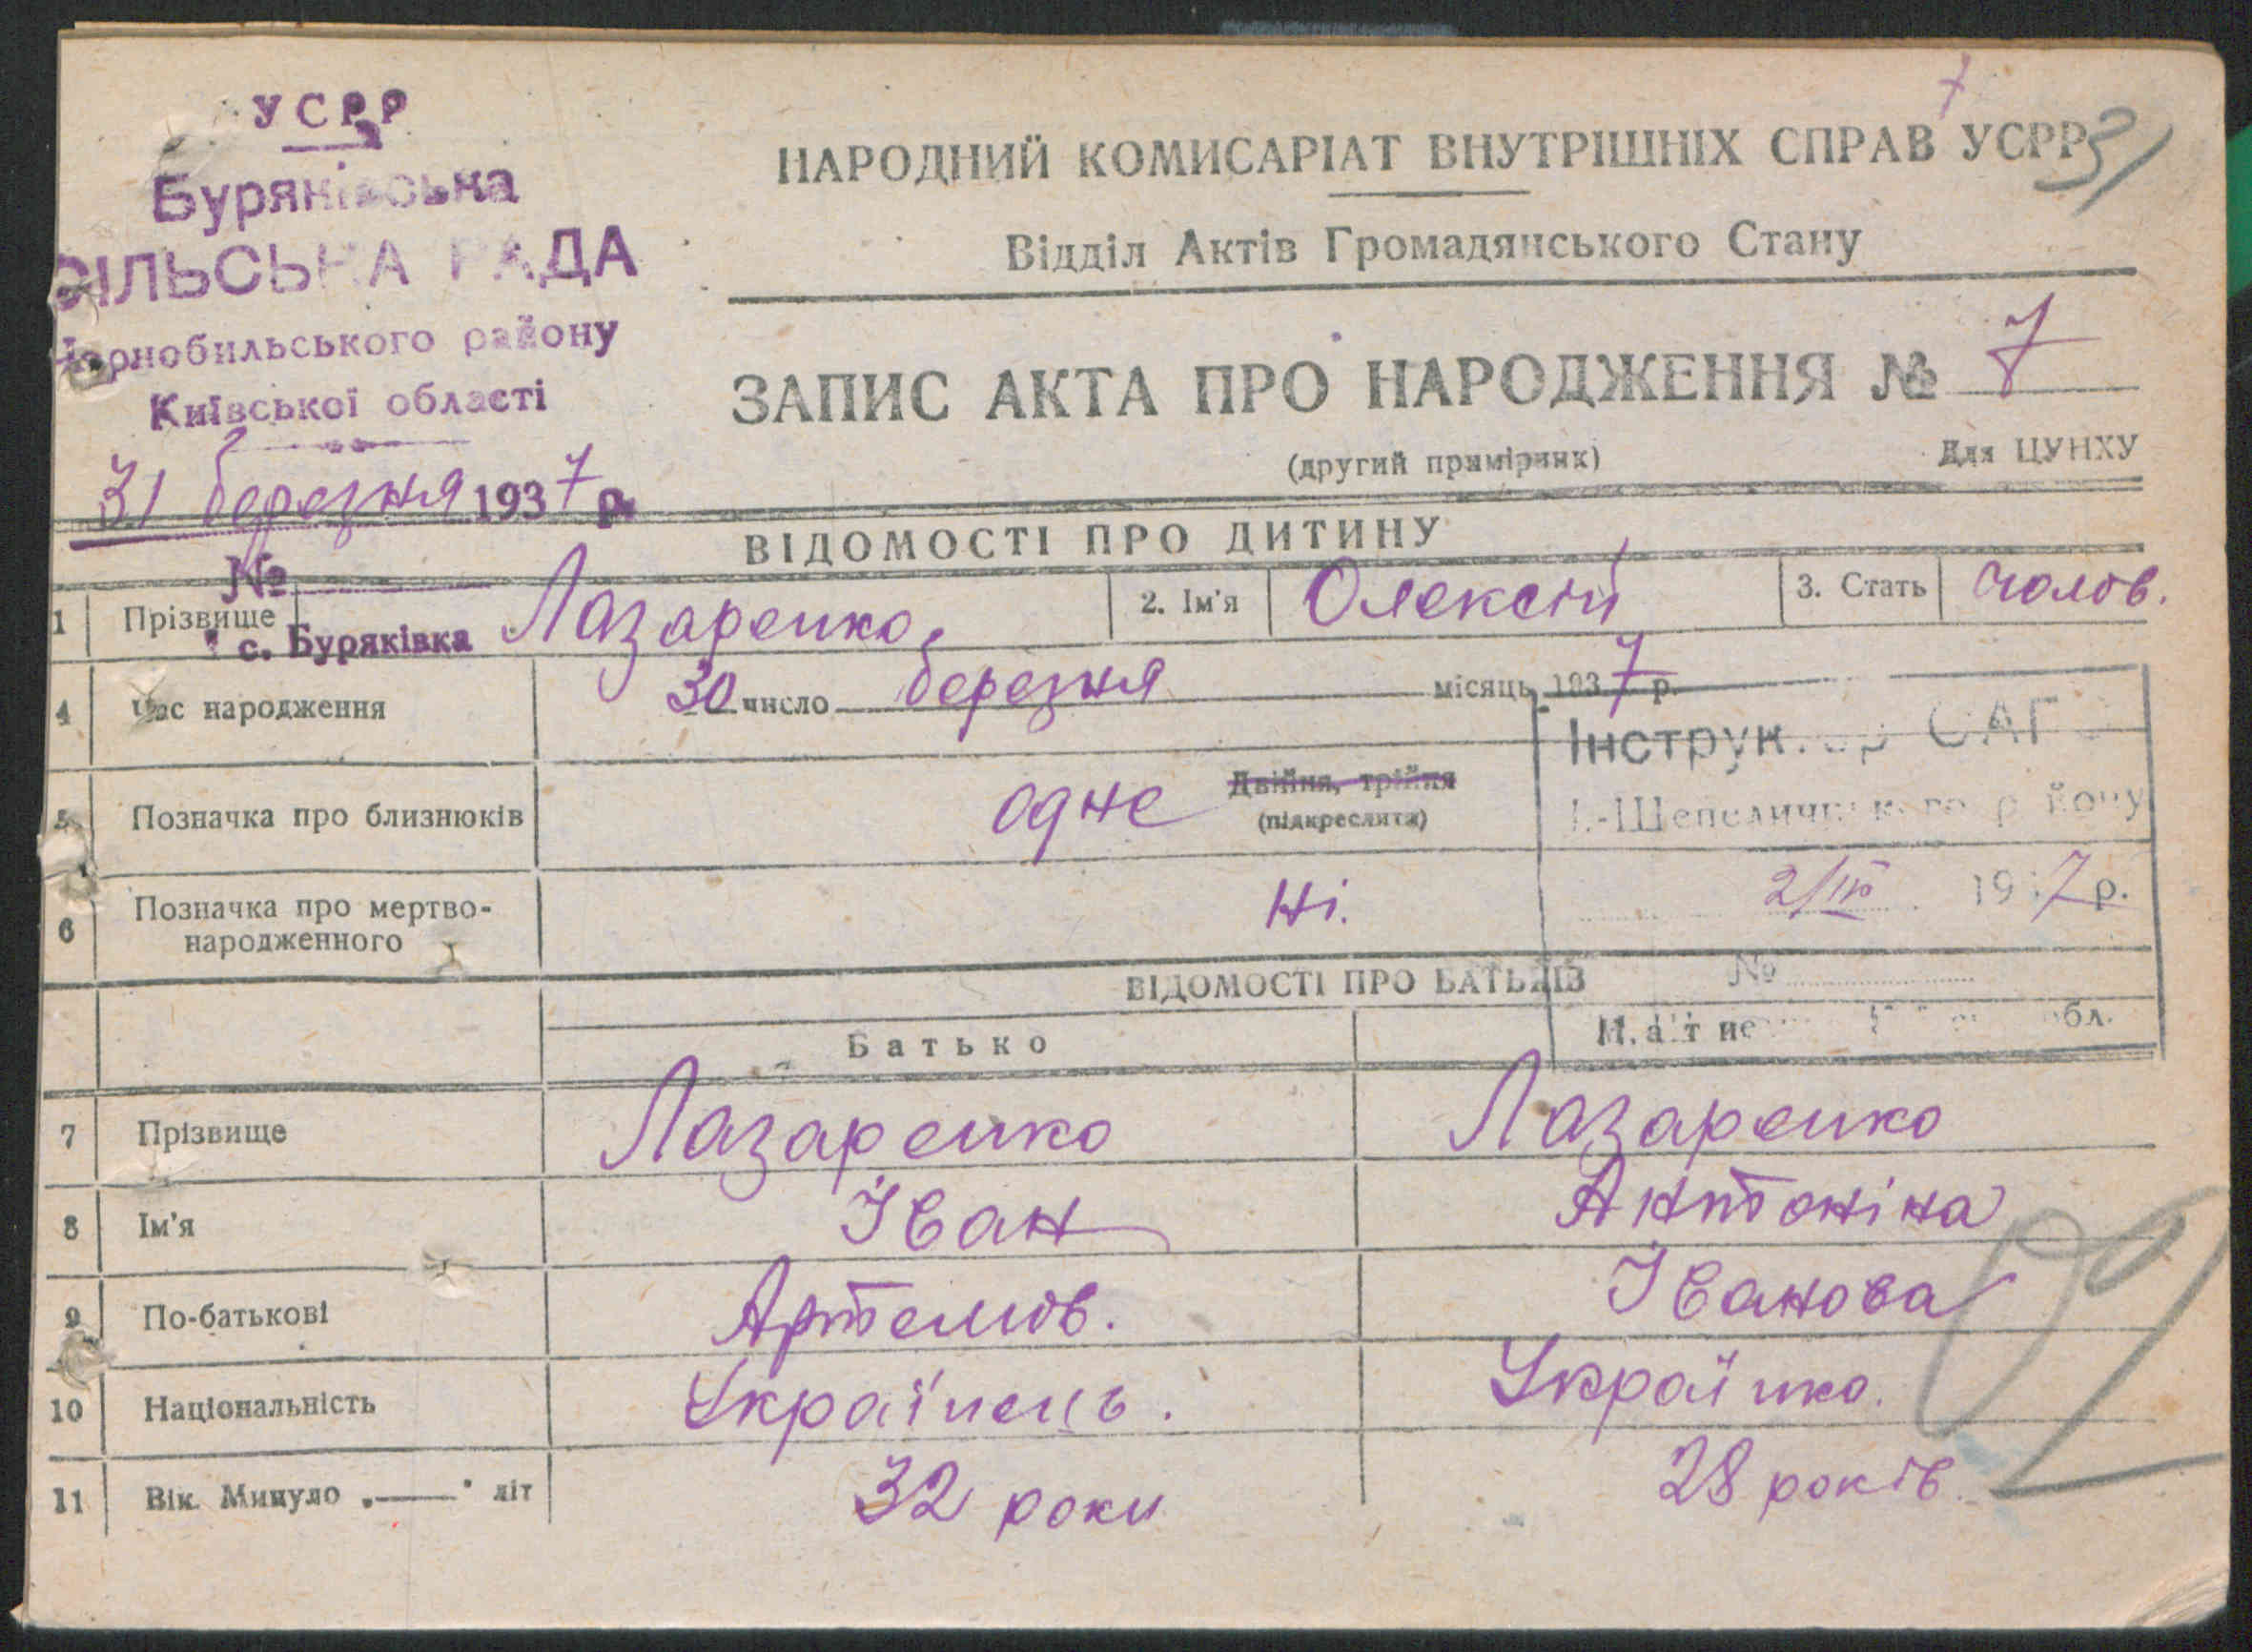 УСРР
Буряківська
СІЛЬСЬКА РАДА
Чорнобильського району
Київської області
31 березня 1937 р.
№
с. Буряківка
7
31
НАРОДНИЙ КОМИСАРІАТ ВНУТРІШНІХ СПРАВ УСРР
Відділ Актів Громадянського Стану
ЗАПИС АКТА ПРО НАРОДЖЕННЯ № 7
(другий примірник) Для ЦУНХУ
ВІДОМОСТІ ПРО ДИТИНУ
1 Прізвище Лазаренко 2. Ім'я Олексій 3. Стать чолов.
4 Час народження 30 число березня місяць 1937 р.
5 Позначка про близнюків одне Двійня, трійня
(підкреслити)
6 Позначка про мертво-
народженного Ні.
Інструктор
2/IV 1937 р.
№
ВІДОМОСТІ ПРО БАТЬКІВ
Батько Мати
7 Прізвище Лазаренко Лазаренко
8 Ім'я Іван Антоніна
9 По-батькові Артемов. Іванова
10 Національність Українець. Українка.
11 Вік. Минуло „—" літ 32 роки 28 років.